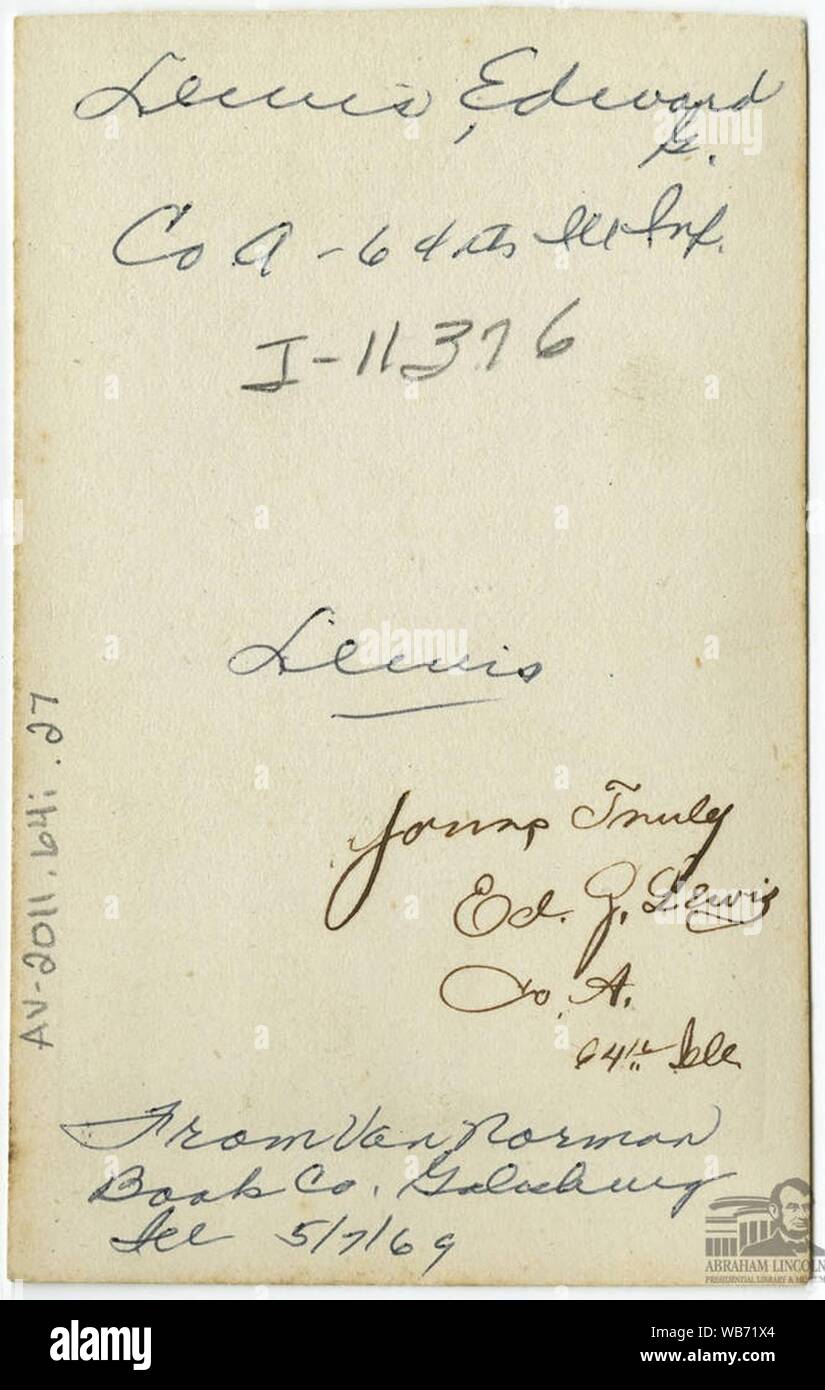 Lewis, Edward
G.
Co A - 64th Ill Inf.
I-11376
Lewis
Yours Truly
Ed. G. Lewis
Co. A.
64th Ills
From Van Norman
Book Co. Galesburg
Ill 5/7/69
AV-2011.64i.27
ABRAHAM LINCOLN
PRESIDENTIAL LIBRARY & MUSEUM
alamy
Image ID: WB71X4
www.alamy.com